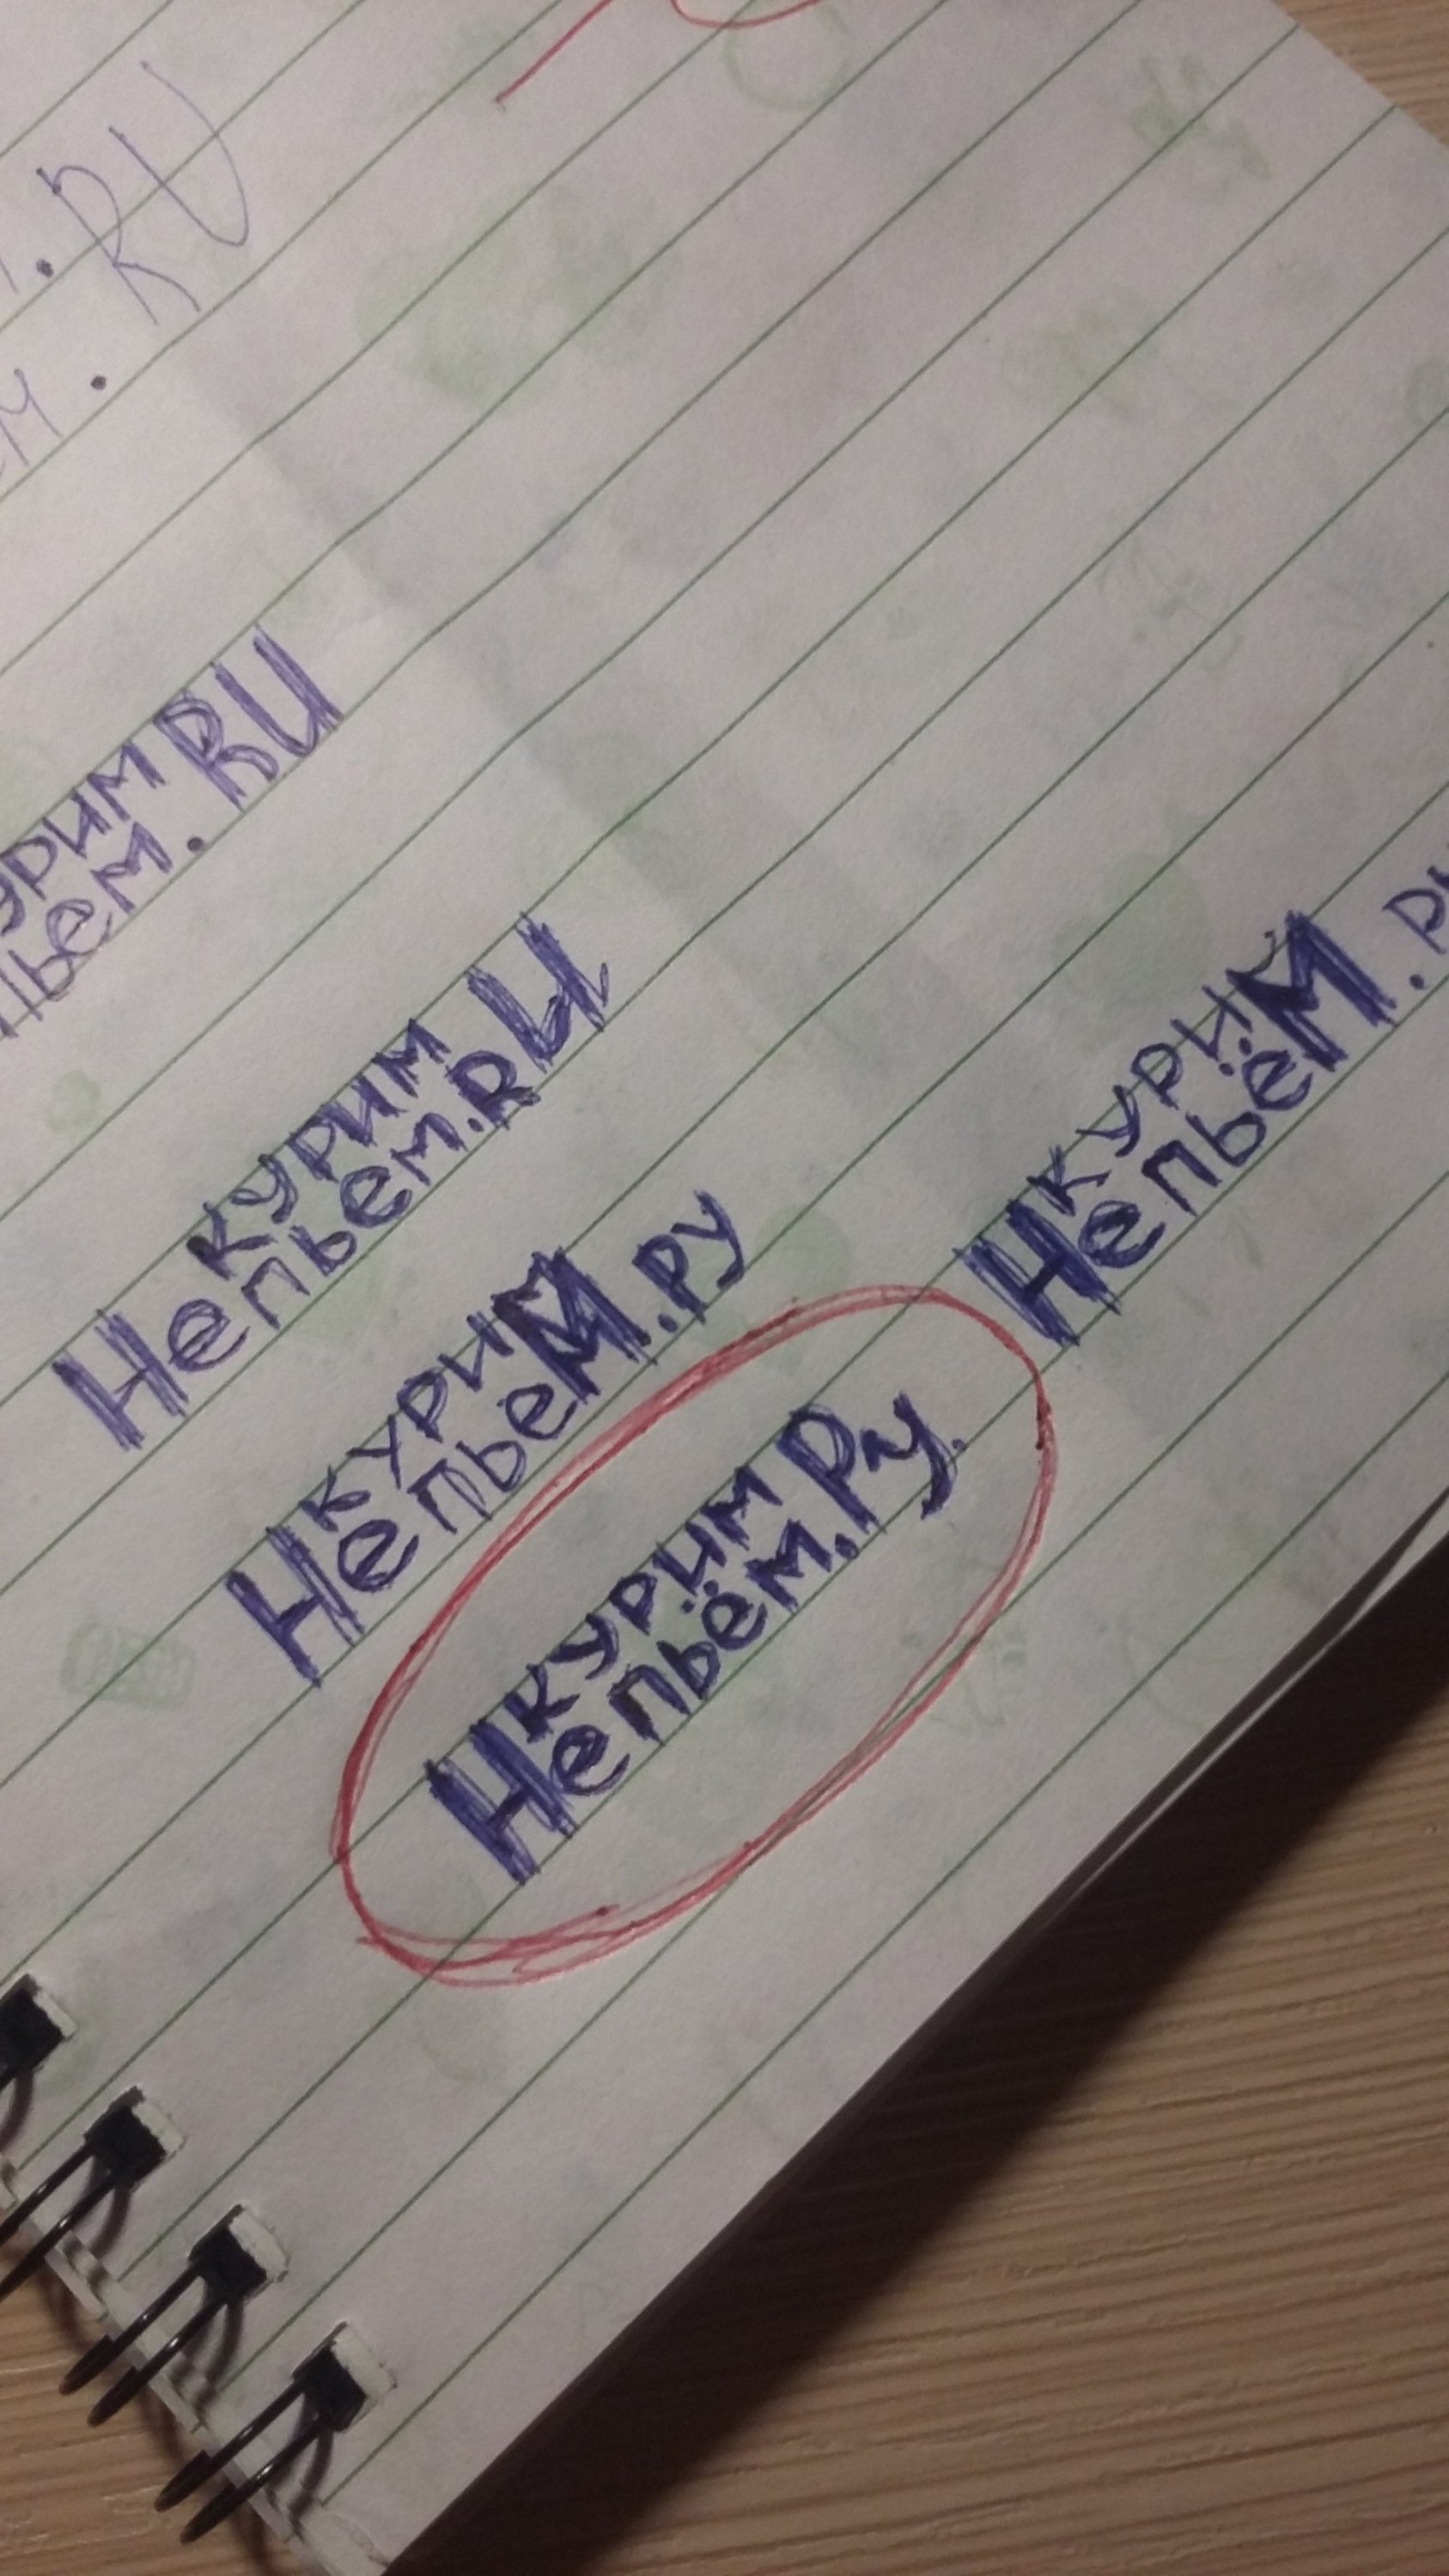 .RU
.
урим
ьем.RU
курим
Непьем.RU
кури
НепьеМ.ру
курим
Непьём.Ру.
кури
НепьёМ.ру